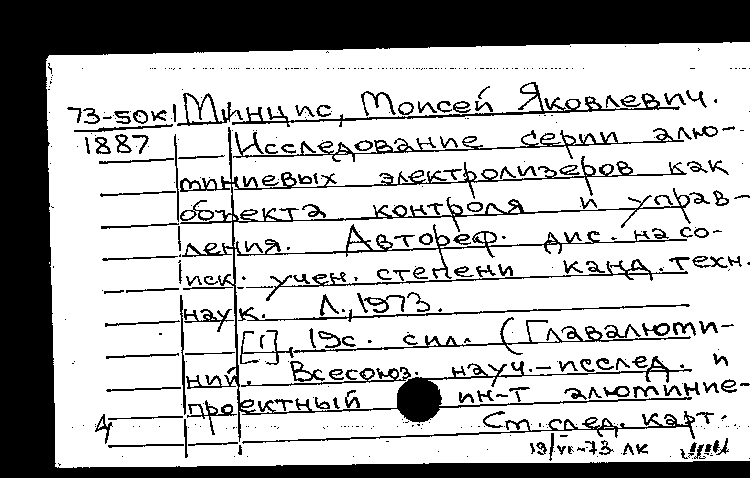 73-50к Минцис, Моисей Яковлевич.
1887 Исследование серии алю-
миниевых электролизеров как
объекта контроля и управ-
ления. Автореф. дис. на со-
иск. учен. степени канд. техн.
наук. Л., 1973.
[1], 19с. с ил. (Главалюми-
ний. Всесоюз. науч.-исслед. и
проектный ин-т алюминие-
См. след. карт.
4
19/VI-73 ЛК